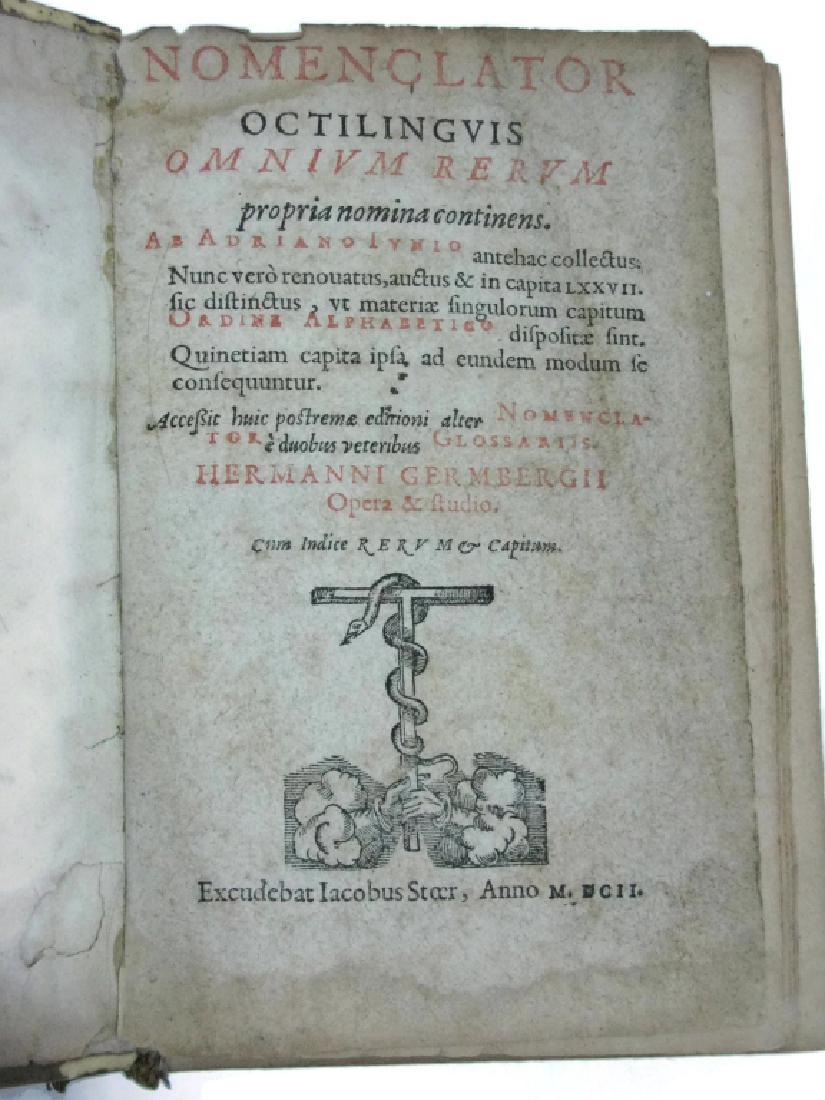 NOMENCLATOR
OCTILINGVIS
OMNIVM RERVM
propria nomina continens.
AB ADRIANO IVNIO antehac collectus:
Nunc verò renouatus, auctus & in capita LXXVII.
sic distinctus, vt materiæ singulorum capitum
ORDINE ALPHABETICO dispositæ sint.
Quinetiam capita ipsa ad eundem modum se
consequuntur.
Accessit huic postremæ editioni alter NOMENCLA-
TOR è duobus veteribus GLOSSARIIS.
HERMANNI GERMBERGII
Opera & studio.
Cum Indice RERVM & Capitum.
Excudebat Iacobus Stœr, Anno M. DCII.